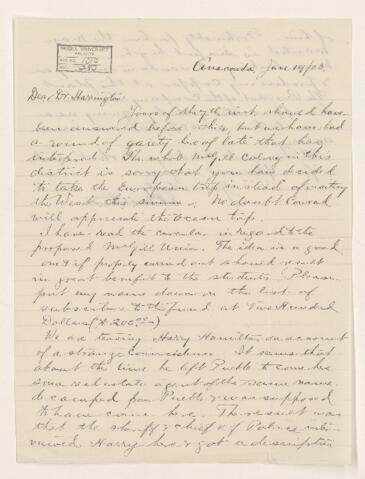 McGILL UNIVERSITY
ARCHIVES
Anaconda, June 14/03.
Dear Dr. Harrington:
Yours of May inst. should have
been answered before this, but we have had
a round of gaiety here of late that has
interfered. The whole McGill colony in this
district is sorry that you have decided
to take the European trip instead of visiting
the West this summer. No doubt Conrad
will appreciate the ocean trip.
I have read the circular in regard to the
proposed McGill Union. The idea is a good
one & if properly carried out should result
in great benefit to the students. Please
put my name down on the list of
subscribers to the fund at Two Hundred
Dollars ($200.00)
We are teasing Harry Hamilton on account
of a strange coincidence. It seems that
about the time he left Pueblo to come here
some real estate agent of the same name
decamped from Pueblo & was supposed
to have come here. The result was
that the sheriff & chief of Police inter-
viewed Harry here & got a description